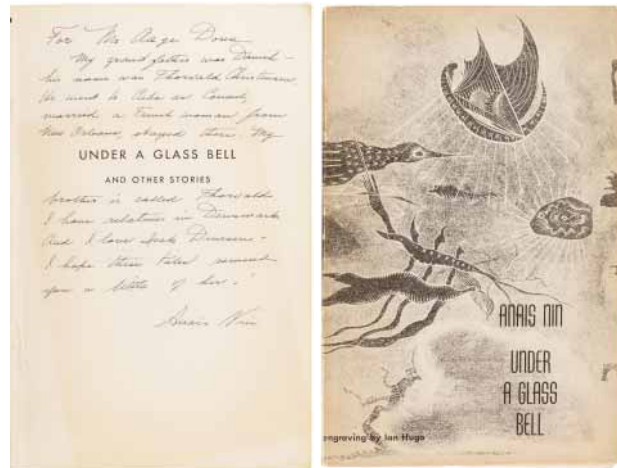 For Mr. Aage
My grand father was Danish –
his name was Thorvald Christensen
He went to Cuba as Consul,
married a French woman from
New Orleans, stayed there. My
UNDER A GLASS BELL
AND OTHER STORIES
brother is called Thorvald
I have relatives in Denmark
And I love Isak Dinesen –
I hope these tales remind
you a little of her.
Anais Nin
ANAIS NIN
UNDER
A GLASS
BELL
engraving by Ian Hugo